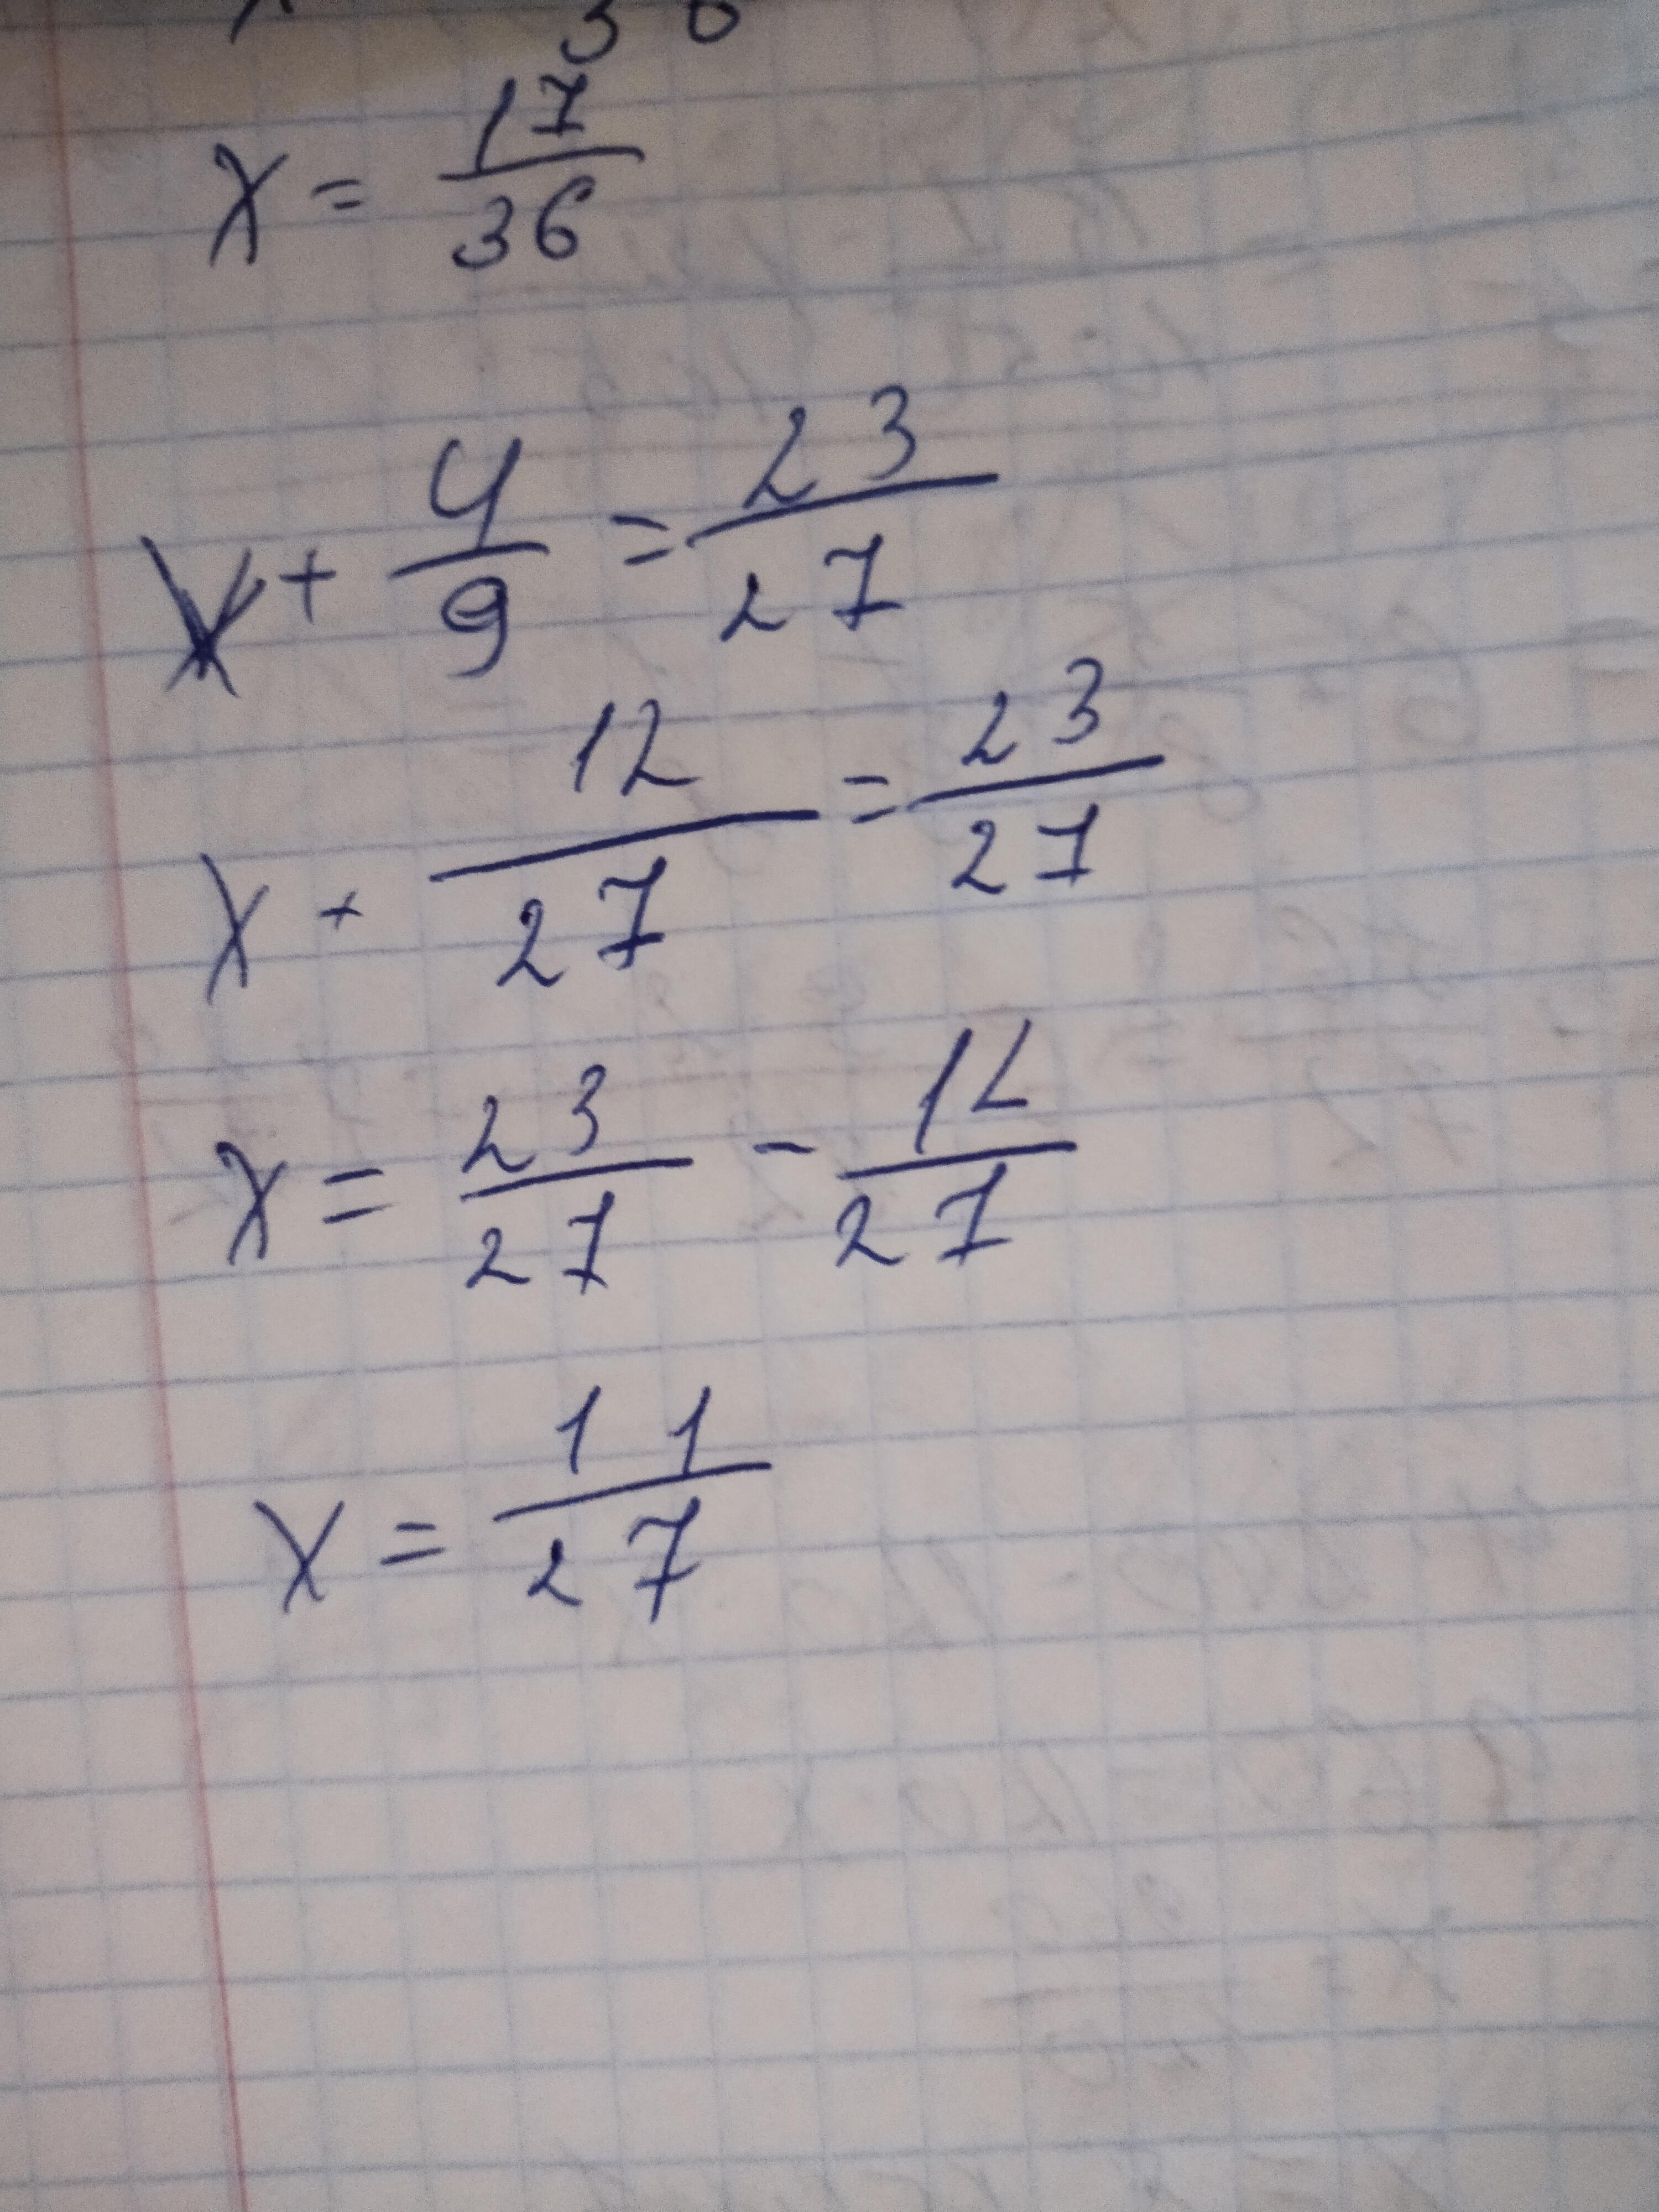 x = 17/36
x + 4/9 = 23/27
x + 12/27 = 23/27
x = 23/27 - 12/27
x = 11/27